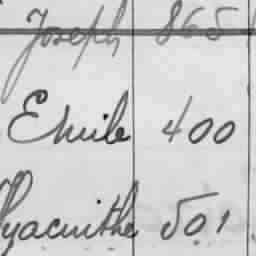 Joseph 865
Emile 400
Hyacinthe 501